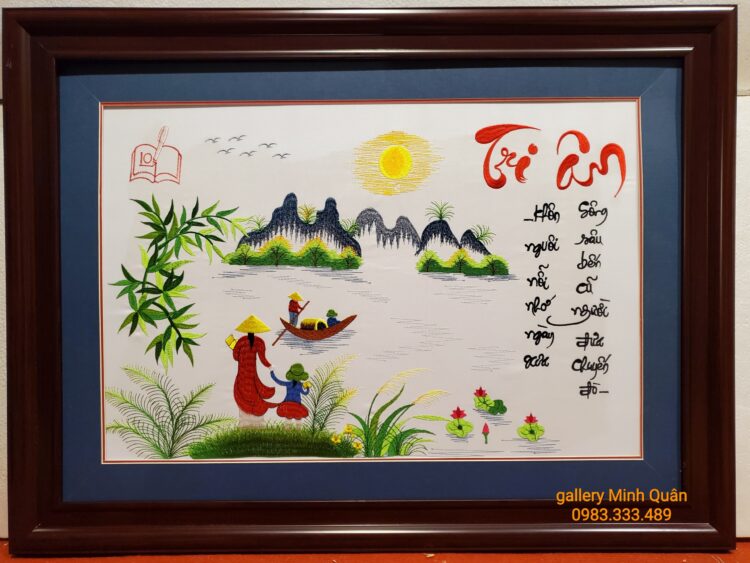 10
Tri Ân
_Khôn nguôi nỗi nhớ ngày xưa
Sông sâu bến cũ người đưa chuyến đò_
gallery Minh Quân
0983.333.489